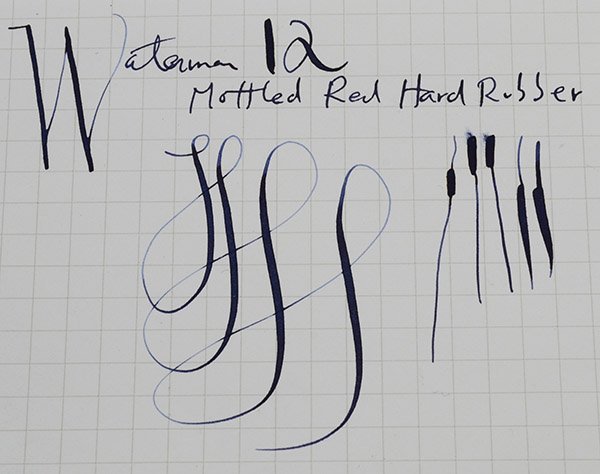 Waterman 12
Mottled Red Hard Rubber